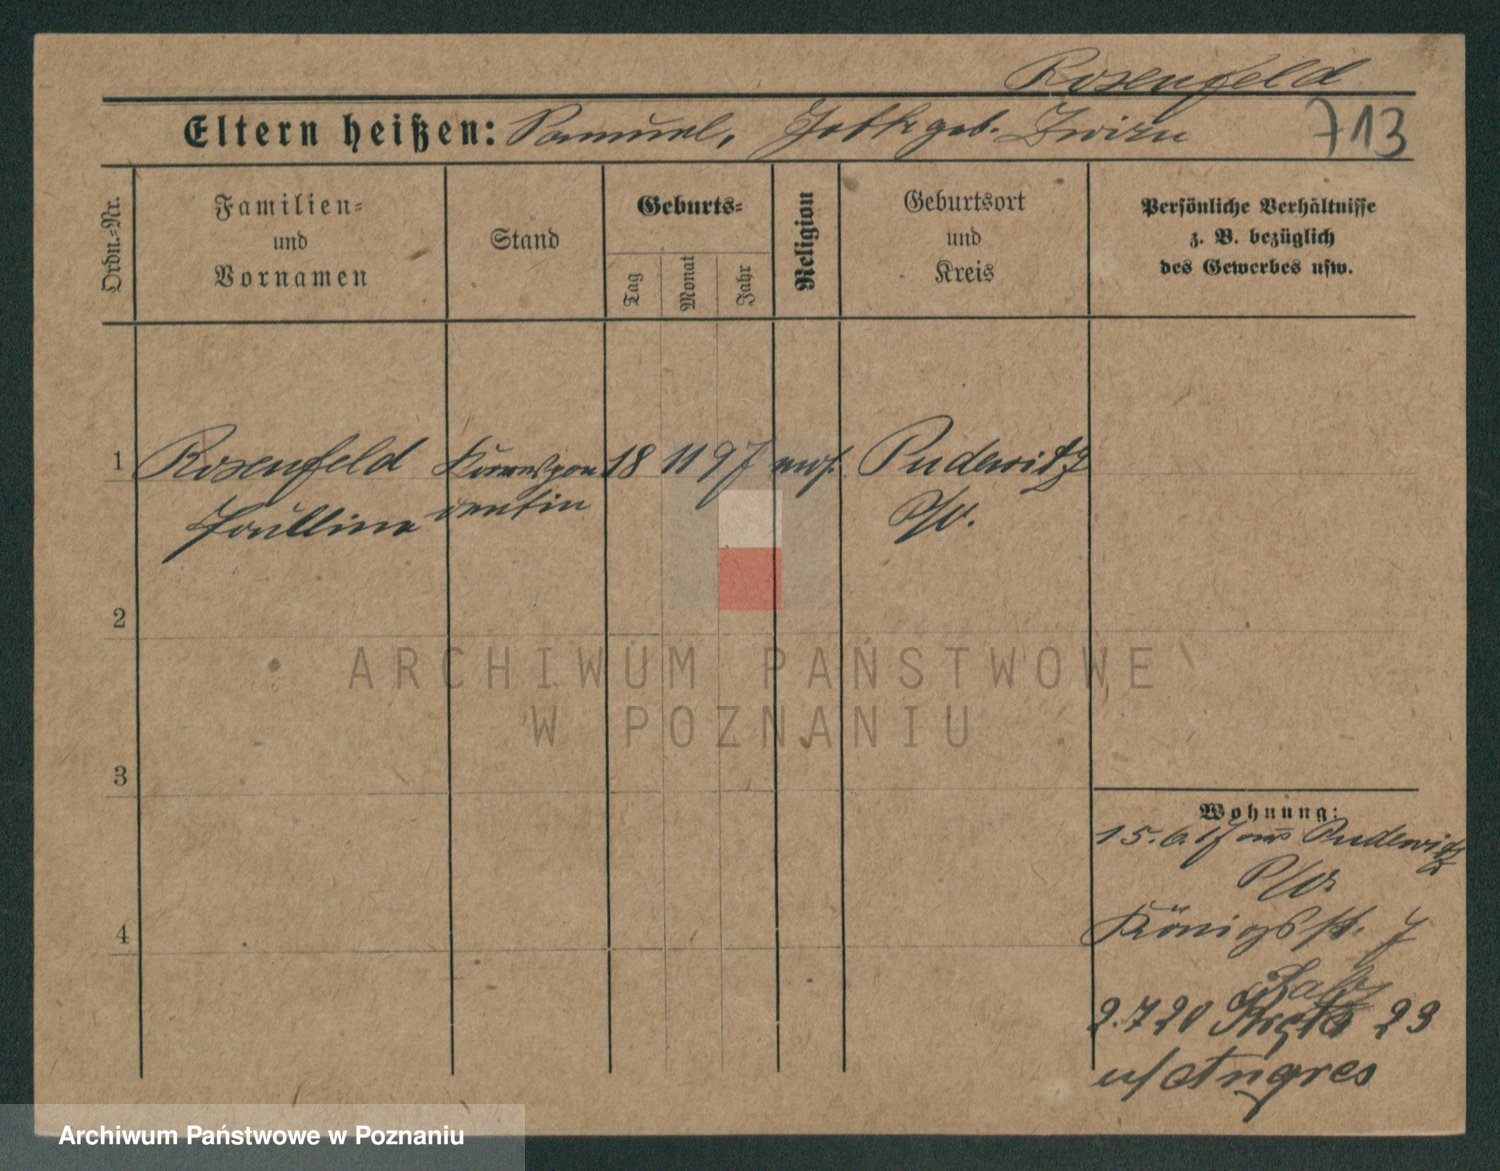 Rosenfeld
Eltern heißen: Samuel, geb. Zwirn 713
Ordn.=Nr.
Familien=
und
Vornamen
Stand
Geburts=
Tag
Monat
Jahr
Religion
Geburtsort
und
Kreis
Persönliche Verhältnisse
z. B. bezüglich
des Gewerbes usw.
1 Rosenfeld Korrespon 18 11 97 mos. Pudewitz
Paulline dentin P/O.
2
3
4
Wohnung:
15.6.17 aus Pudewitz
P/O.
Königsstr. 7
2.7.20 23
u/ Angres
ARCHIWUM PAŃSTWOWE
W POZNANIU
Archiwum Państwowe w Poznaniu